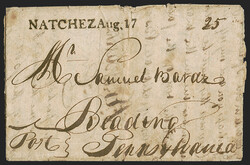 NATCHEZ Aug, 17 25
Mr Samuel Baraz
Reading
Post Pennsylvania